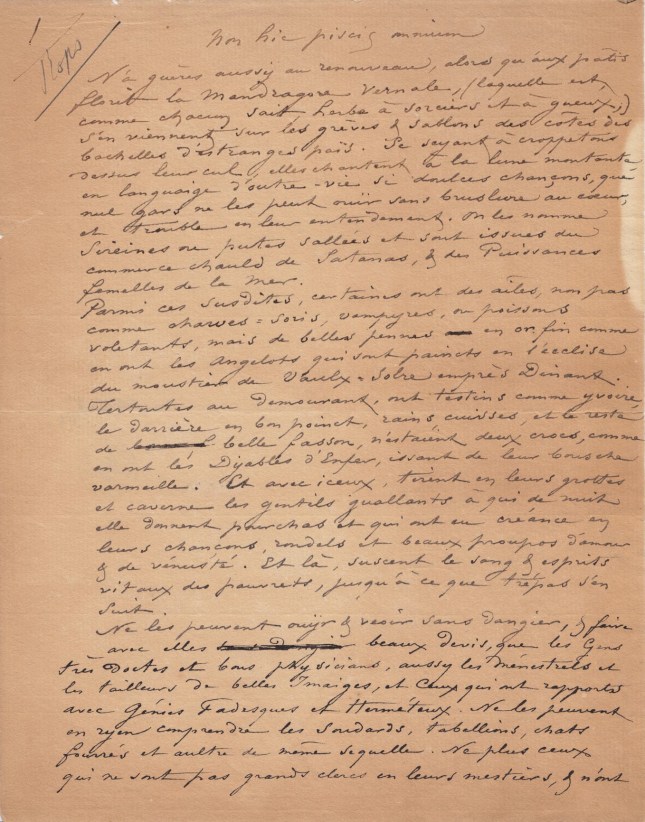 Non hic piscis omnium
Rops
N'a guères aussy au renouveau, alors qu'aux patis
florit la Mandragore Vernale, (laquelle est,
comme chacun sait, herbe à sorciers et à gueux,)
s'en viennent sur les grèves & sablons des côtes des
Cochelles d'estranges païs. Se seyant à croppetons
dessus leur cul, elles chantent à la lune montante
en languaige d'outre-vie si doulces chançons, que
nul gars ne les peut ouir sans bruslure au cœur,
et trouble en leur entendement. On les nomme
Sireines ou putes sallées et sont issues du
commerce chauld de Satanas, & des Puissances
femelles de la Mer.
Parmi ces susdites, certaines ont des ailes, non pas
comme chauves=soris, vampyres, ou poissons
voletants, mais de belles pennes en or fin comme
en ont les Angelots qui sont paincts en l'ecclise
du moustier de Vaulx=Solre emprès Dinant.
Tertoutes au demourant, ont testins comme yvoire,
le darrière en bon poinct, rains cuisses, et le reste
de belle fasson, n'estaient deux crocs, comme
en ont les Dyables d'Enfer, issant de leur bousche
varmeille. Et avec iceux, tirent en leurs grottes
et caverne les gentils guallants à qui de nuit
elle donnent pourchas et qui ont eu créance en
leurs chançons, rondels et beaux proupos d'amour
& de vénusté. Et là, suscent le sang & esprits
vitaux des pauvrets, jusqu'à ce que trépas s'en
suit.
Ne les peuvent ouijr & veoir sans dangier, & faire
avec elles beaux devis, que les Gens
très Doctes et bons physicians, aussy les Menestrels et
les tailleurs de belles Imaiges, et Ceux qui ont rapports
avec Génies Fadesques et Herméteux. Ne les peuvent
en ryen comprendre les Soudards, tabellions, chats
fourrés et aultre de même sequelle. Ne plus ceux
qui ne sont pas grands clercs en leurs mestiers, & n'ont